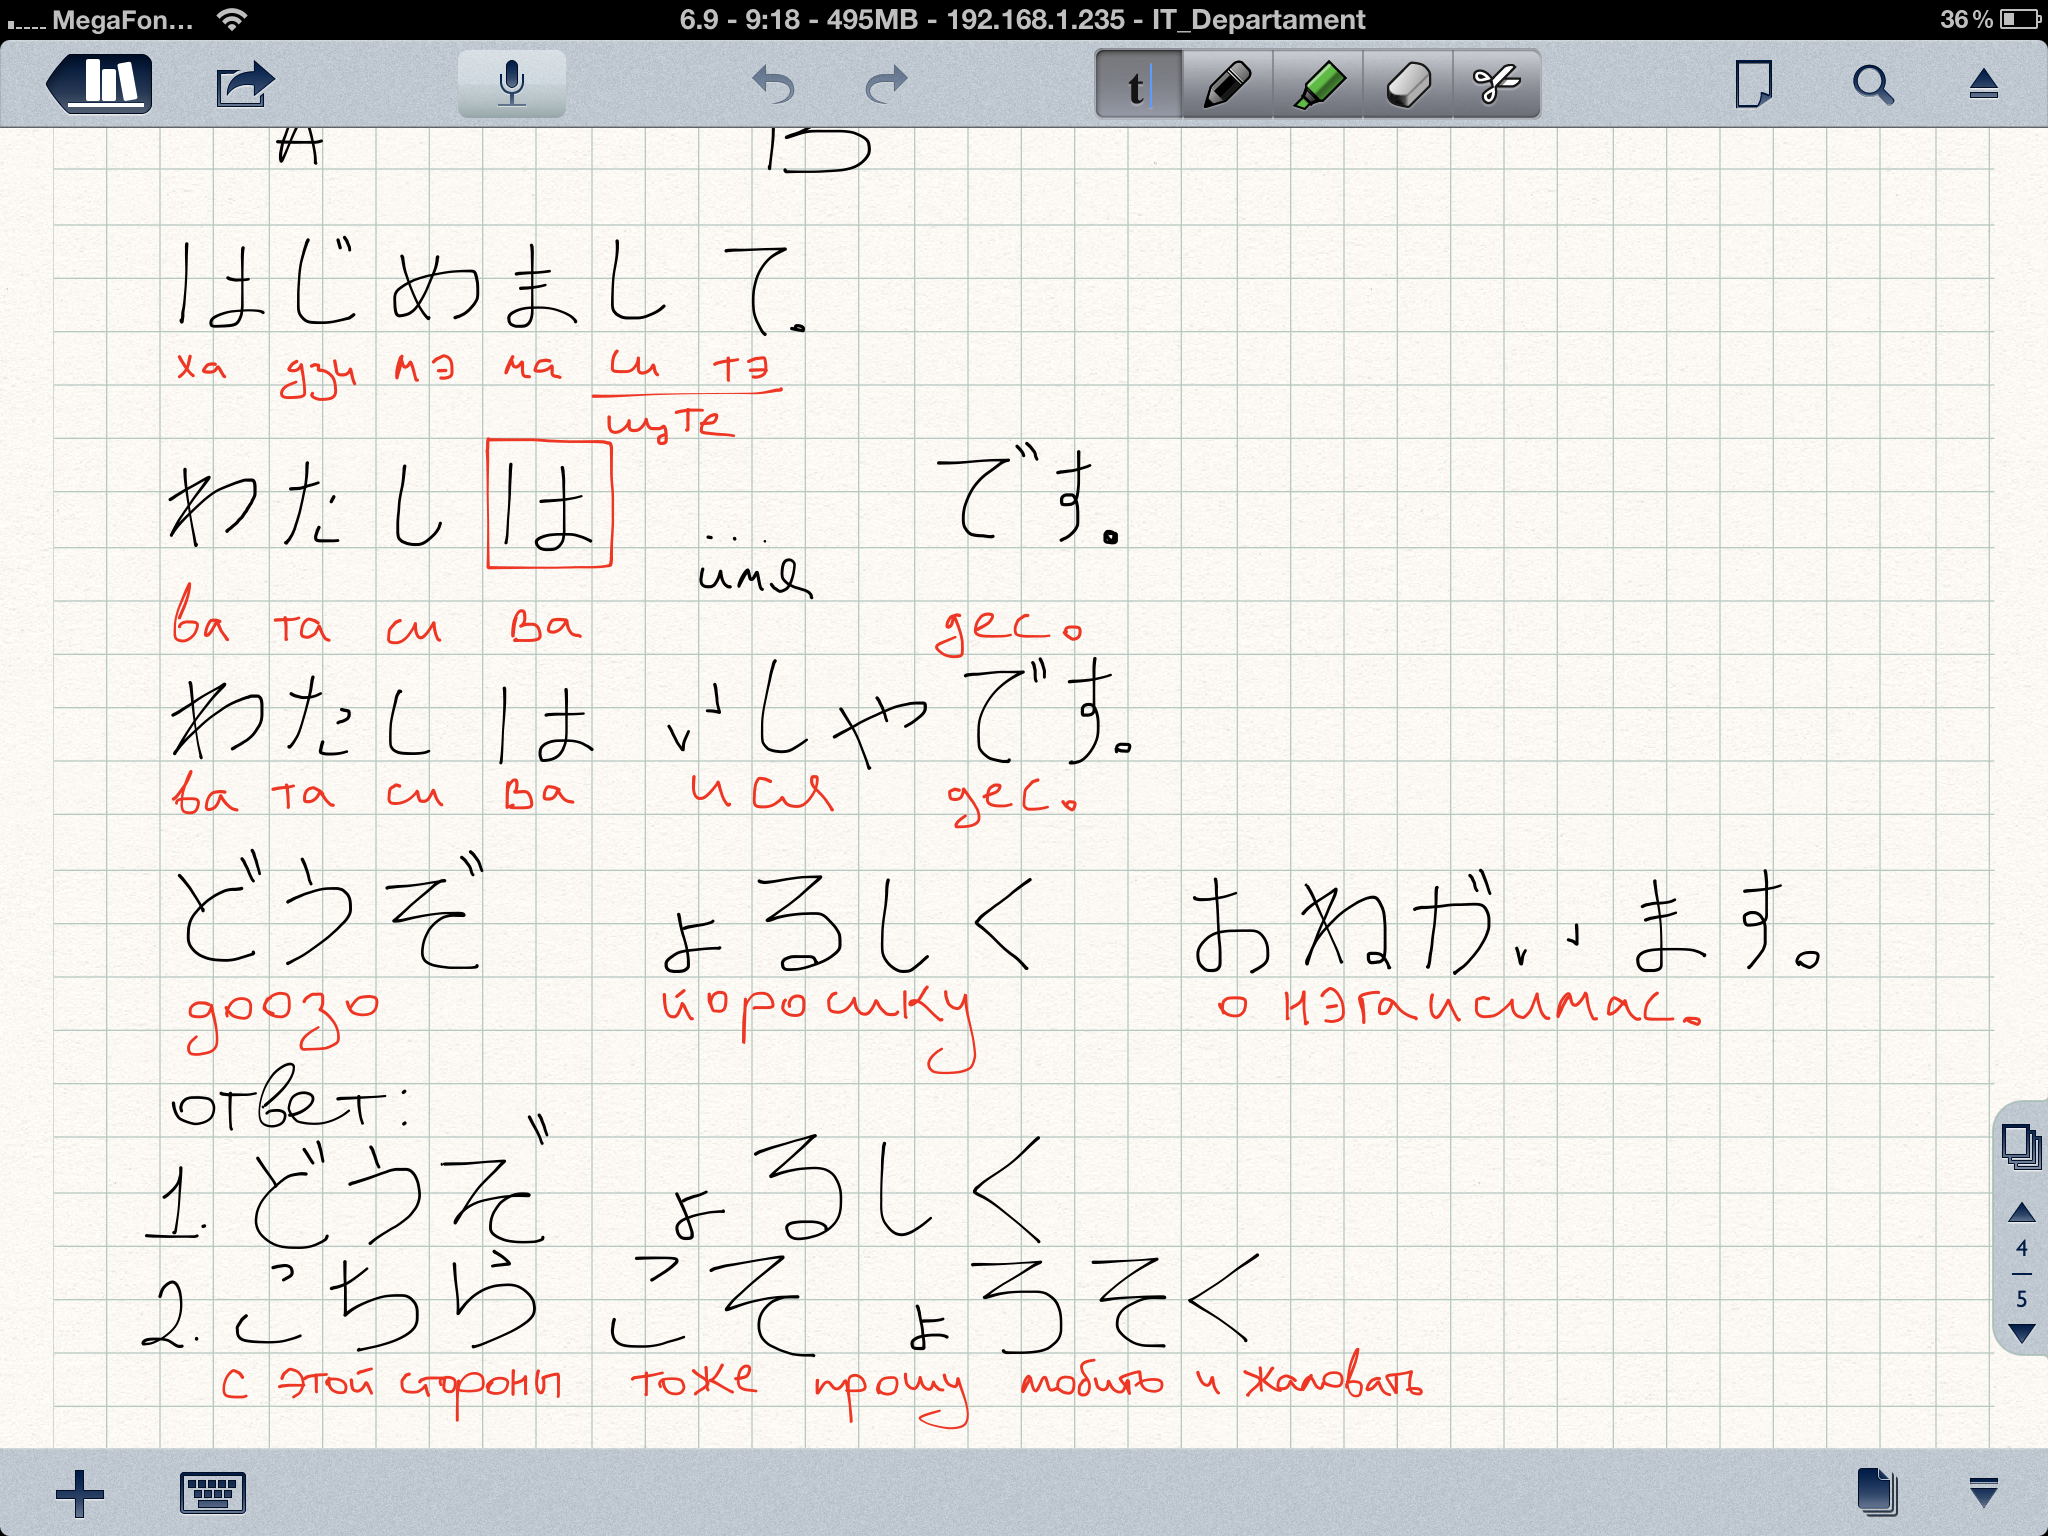 MegaFon... 6.9 - 9:18 - 495MB - 192.168.1.235 - IT_Departament 36%
t
A Б
はじめまして.
ха дзи мэ ма си тэ
щуте
わたしは ... です.
имя
ва та си ва дес.
わたしは いしやです.
ва та си ва ися дес.
どうぞ よろしく おねがいます。
доозо йоросику онэгаисимас.
ответ:
1. どうぞ よろしく
2. こちら こそ よろそく
с этой стороны тоже прошу любить и жаловать
4
5